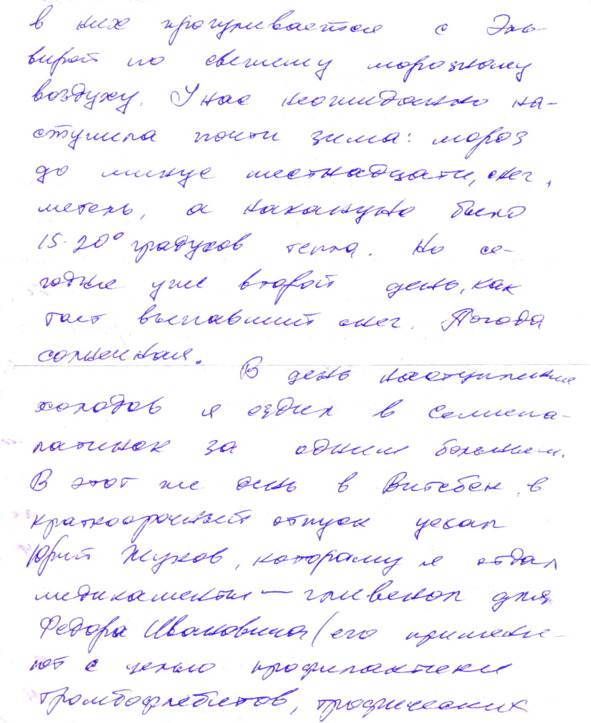 в них прогуливается с Эль-
вирой по свежему морозному
воздуху. У нас неожиданно на-
ступила почти зима: мороз
до минус шестнадцати, снег,
метель, а накануне было
15-20° градусов тепла. Но се-
годня уже второй день, как
тает выпавший снег. Погода
солнечная.
В день наступления
холодов я ездил в Семипа-
латинск за одним больным.
В этот же день в Витебск, в
краткосрочный отпуск уехал
Юрий Жуков, которому я отдал
медикаменты – гливенол для
Федора Ивановича (его применя-
ют с целью профилактики
тромбофлебитов, трофических